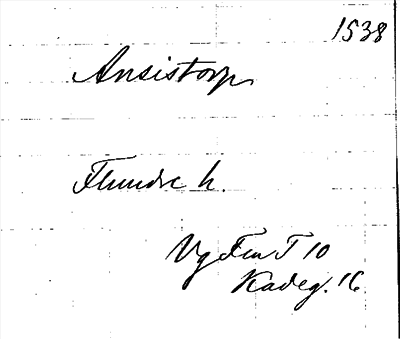 1538
Ansistorp
Flundre h.
Vg Fru T 10
Kadeg. 16